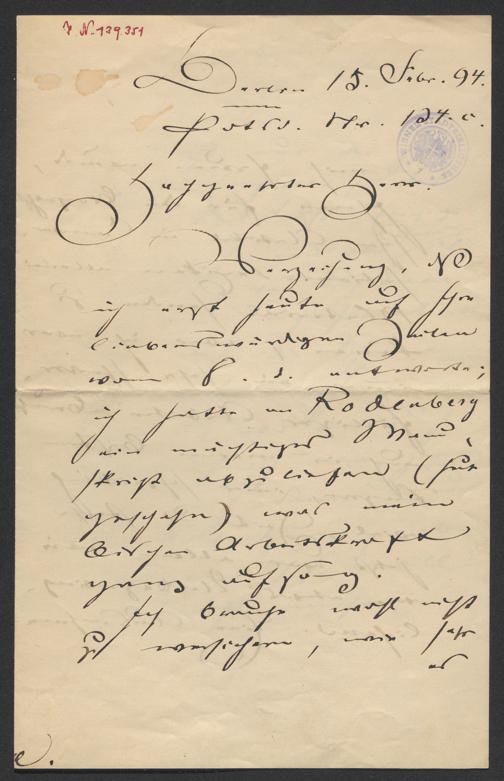 I N. 139.351
Berlin 15. Febr. 94.
Potsd. Str. 134. c.
Hochgeehrter Herr.
Verzeihung, daß
ich erst heute auf Ihre
liebenswürdigen Zeilen
vom 8. d. antworte;
ich hatte an Rodenberg
ein mächtiges Manu-
skript abzuliefern (heut
geschehn) was mein
bischen Arbeitskraft
ganz aufsog.
Ich brauche wohl nicht
zu versichern, wie sehr
es